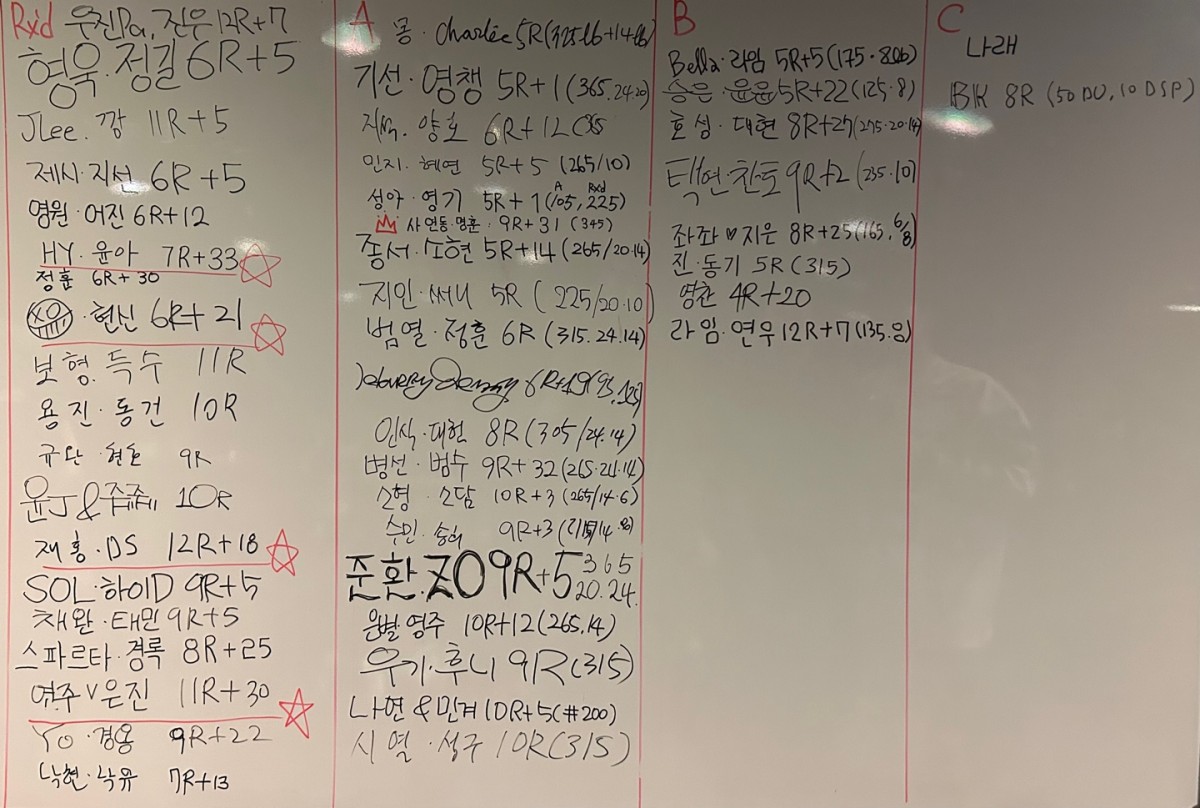 Rx'd
우진Pa, 진우 12R+7
형욱.정길 6R+5
JLee. 깡 11R+5
제시·지선 6R+5
영원·어진 6R+12
HY·윤아 7R+33
정훈 6R+30
·현신 6R+21
보형.득수 11R
용진·동건 10R
규단·현호 9R
윤J & 10R
재홍·DS 12R+18
SOL·하이D 9R+5
채완·태민 9R+5
스파르타·경록 8R+25
여주 V 은진 11R+30
Yo·경용 9R+22
낙현·낙유 7R+13
A
몽·charlie 5R(325lb+14lb)
기선·영챙 5R+1(365.24.20)
양호 6R+12
민지·혜연 5R+5 (265/10)
성아·영기 5R+1(A 105, Rxd 225)
사연동·명훈: 9R+31 (345)
종서·소현 5R+14(265/20.14)
지인·써니 5R (225/20.10)
범열·정훈 6R(315.24.14)
6R+19
인식·대헌 8R(305/24.14)
병선·범수 9R+32(265.24.14)
소형·소담 10R+3(265/14.6)
수민·송희 9R+3
준환.ZO 9R+5 365 20.24.
은별 영주 10R+12(265.14)
우기·후니 9R(315)
나연 & 민계 10R+5(#200)
시열·성구 10R(315)
B
Bella·라임 5R+5(175·8lb)
승은·윤윤 5R+22(125·8)
효성·대현 8R+27(275·20·14)
택연·찬토 9R+2(235.10)
좌좌♥지은 8R+25(165, 6/8)
진·동기 5R(315)
영찬 4R+20
라임·연우 12R+7(135.8)
C
나래
BK 8R (50DU, 10DSP)